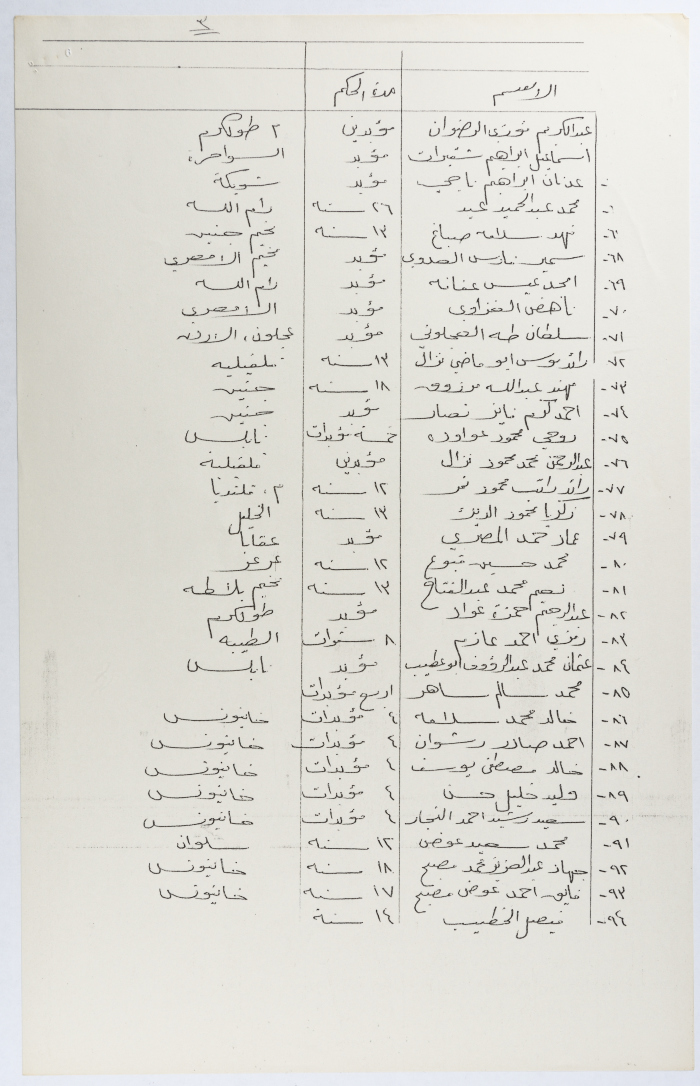 ٣
الاسم مدة الحكم
عبدالكريم فوزي الرضوان مؤبدين م طولكرم
اسماعيل ابراهيم شقيرات مؤبد السواحرة
عدنان ابراهيم ناجي مؤبد شويكة
محمد عبدالحميد عبيد ٢٦ سنه رام الله
فهد سلامه صباغ ١٣ سنه مخيم جنين
٦٨- سمير فارس العدوي مؤبد مخيم الامعري
٦٩- امجد عيس عنانه مؤبد رام الله
٧٠- ناهض الفغزاوي مؤبد الامعري
٧١- سلطان طه العجلوني مؤبد عجلون، الاردن
٧٢- رائد موسى ابو ماضي نزال ١٣ سنه قلقيليه
٧٣- مهند عبدالله مرزوق ١٨ سنه جنين
٧٤- احمد كرم فايز نصار مؤبد جنين
٧٥- روحي محمود عواوده خمسة مؤبدات نابلس
٧٦- عبدالرحمن محمد محمود نزال مؤبدين قلقيلية
٧٧- رائد راتب محمود نمر ١٢ سنه م، قلنديا
٧٨- زكريا محمود الديك ١٣ سنه الخليل
٧٩- عمار حمد المصري مؤبد عقابا
٨٠- محمد حسين ١٢ سنه
٨١- نعيم محمد عبدالفتاح ١٣ سنه مخيم بلاطه
٨٢- عبدالرحيم حمزة عواد مؤبد طولكرم
٨٣- رمزي احمد عازم ٨ سنوات الطيبه
٨٤- عثمان محمد عبدالرؤوف ابوعطيب مؤبد نابلس
٨٥- محمد سالم ساهر اربع مؤبدات
٨٦- خالد محمد سلامه ٤ مؤبدات خانيونس
٨٧- احمد صادر رشوان ٤ مؤبدات خانيونس
٨٨- خالد مصطفى يوسف ٤ مؤبدات خانيونس
٨٩- وليد خليل حسن ٤ مؤبدات خانيونس
٩٠- سعيد رشيد احمد النجار ٤ مؤبدات خانيونس
٩١- محمد سعيد عوض ١٢ سنه سلوان
٩٢- جهاد عبدالعزيز محمد مصبح ١٨ سنه خانيونس
٩٣- فايق احمد عوض مصبح ١٧ سنه خانيونس
٩٤- فيصل الخطيب ١٤ سنة